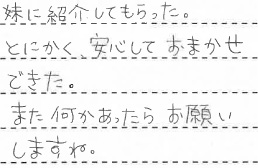 妹に紹介してもらった。
とにかく、安心しておまかせ
できた。
また何かあったらお願い
しますね。